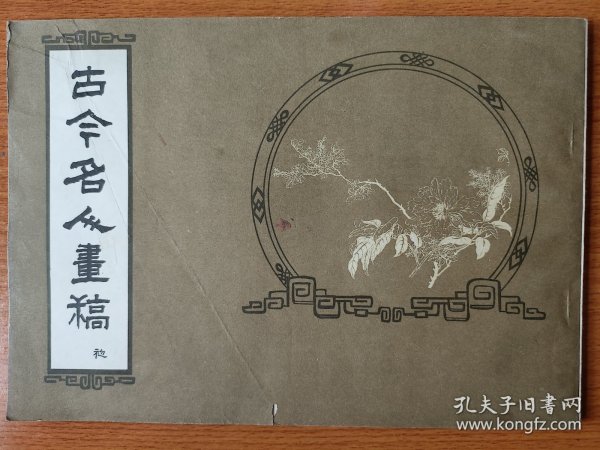 古今名人畫稿
初
孔夫子旧書网
www.kongfz.com